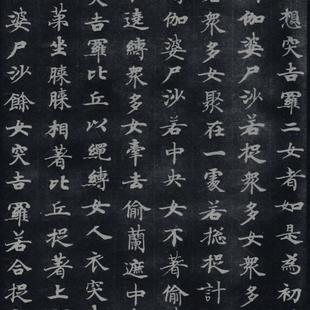 想突吉羅二女者如是為初
伽婆尸沙若捉眾多女眾多
眾多女聚在一處若捴捉計
伽婆尸沙若中央女不著偷
遶縛眾多女牽去偷蘭遮中
吉羅比丘以繩縛女人衣突
苐坐膝膝相著比丘捉著上
婆尸沙餘女突吉羅若合捉